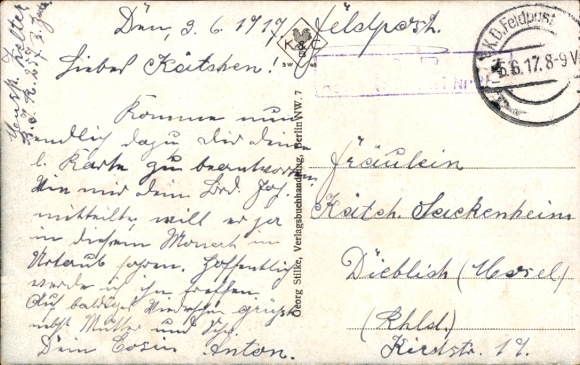 Den, 3.6.1917.
Feldpost.
Liebes Kätchen!
Komme nun
endlich dazu Dir deine
l. Karte zu beantworten.
Wie mir dein Brd. Joh.
mitteilte, will er ja
in diesem Monat in
Urlaub fahren. Hoffentlich
werde ich ihn treffen.
Auf baldiges Wiedersehn grüßt
nebst Mutter und
Dein Cosin Anton.
K & C
Georg Stilke, Verlagsbuchhandlung, Berlin NW. 7
K.D. Feldpost
5.6.17. 8-9 V
Fräulein
Kätch. Sackenheim
Dieblich (Mosel)
(Rhld.)
Kirchstr. 17.